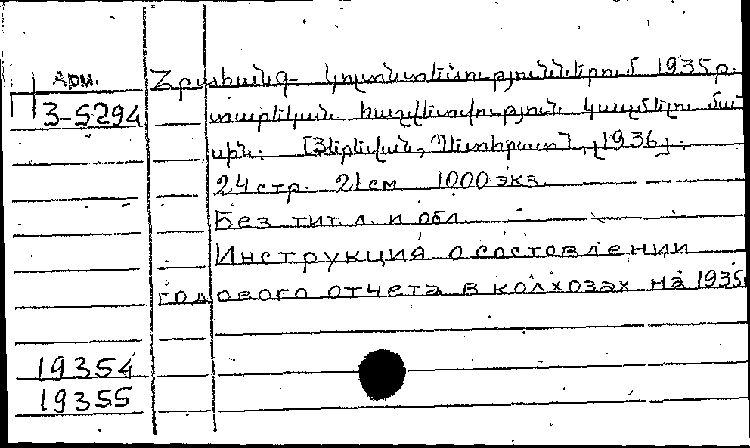 Арм.
3-5294
Հրահանգ կոլտնտեսություններում 1935 թ.
տարեկան հաշվետվություն կազմելու մա-
սին. [Յերևան, Պետհրատ], [1936].
24 стр. 21 см 1000 экз.
Без тит. л. и обл.
Инструкция о составлении
годового отчета в колхозах на 1935
19354
19355